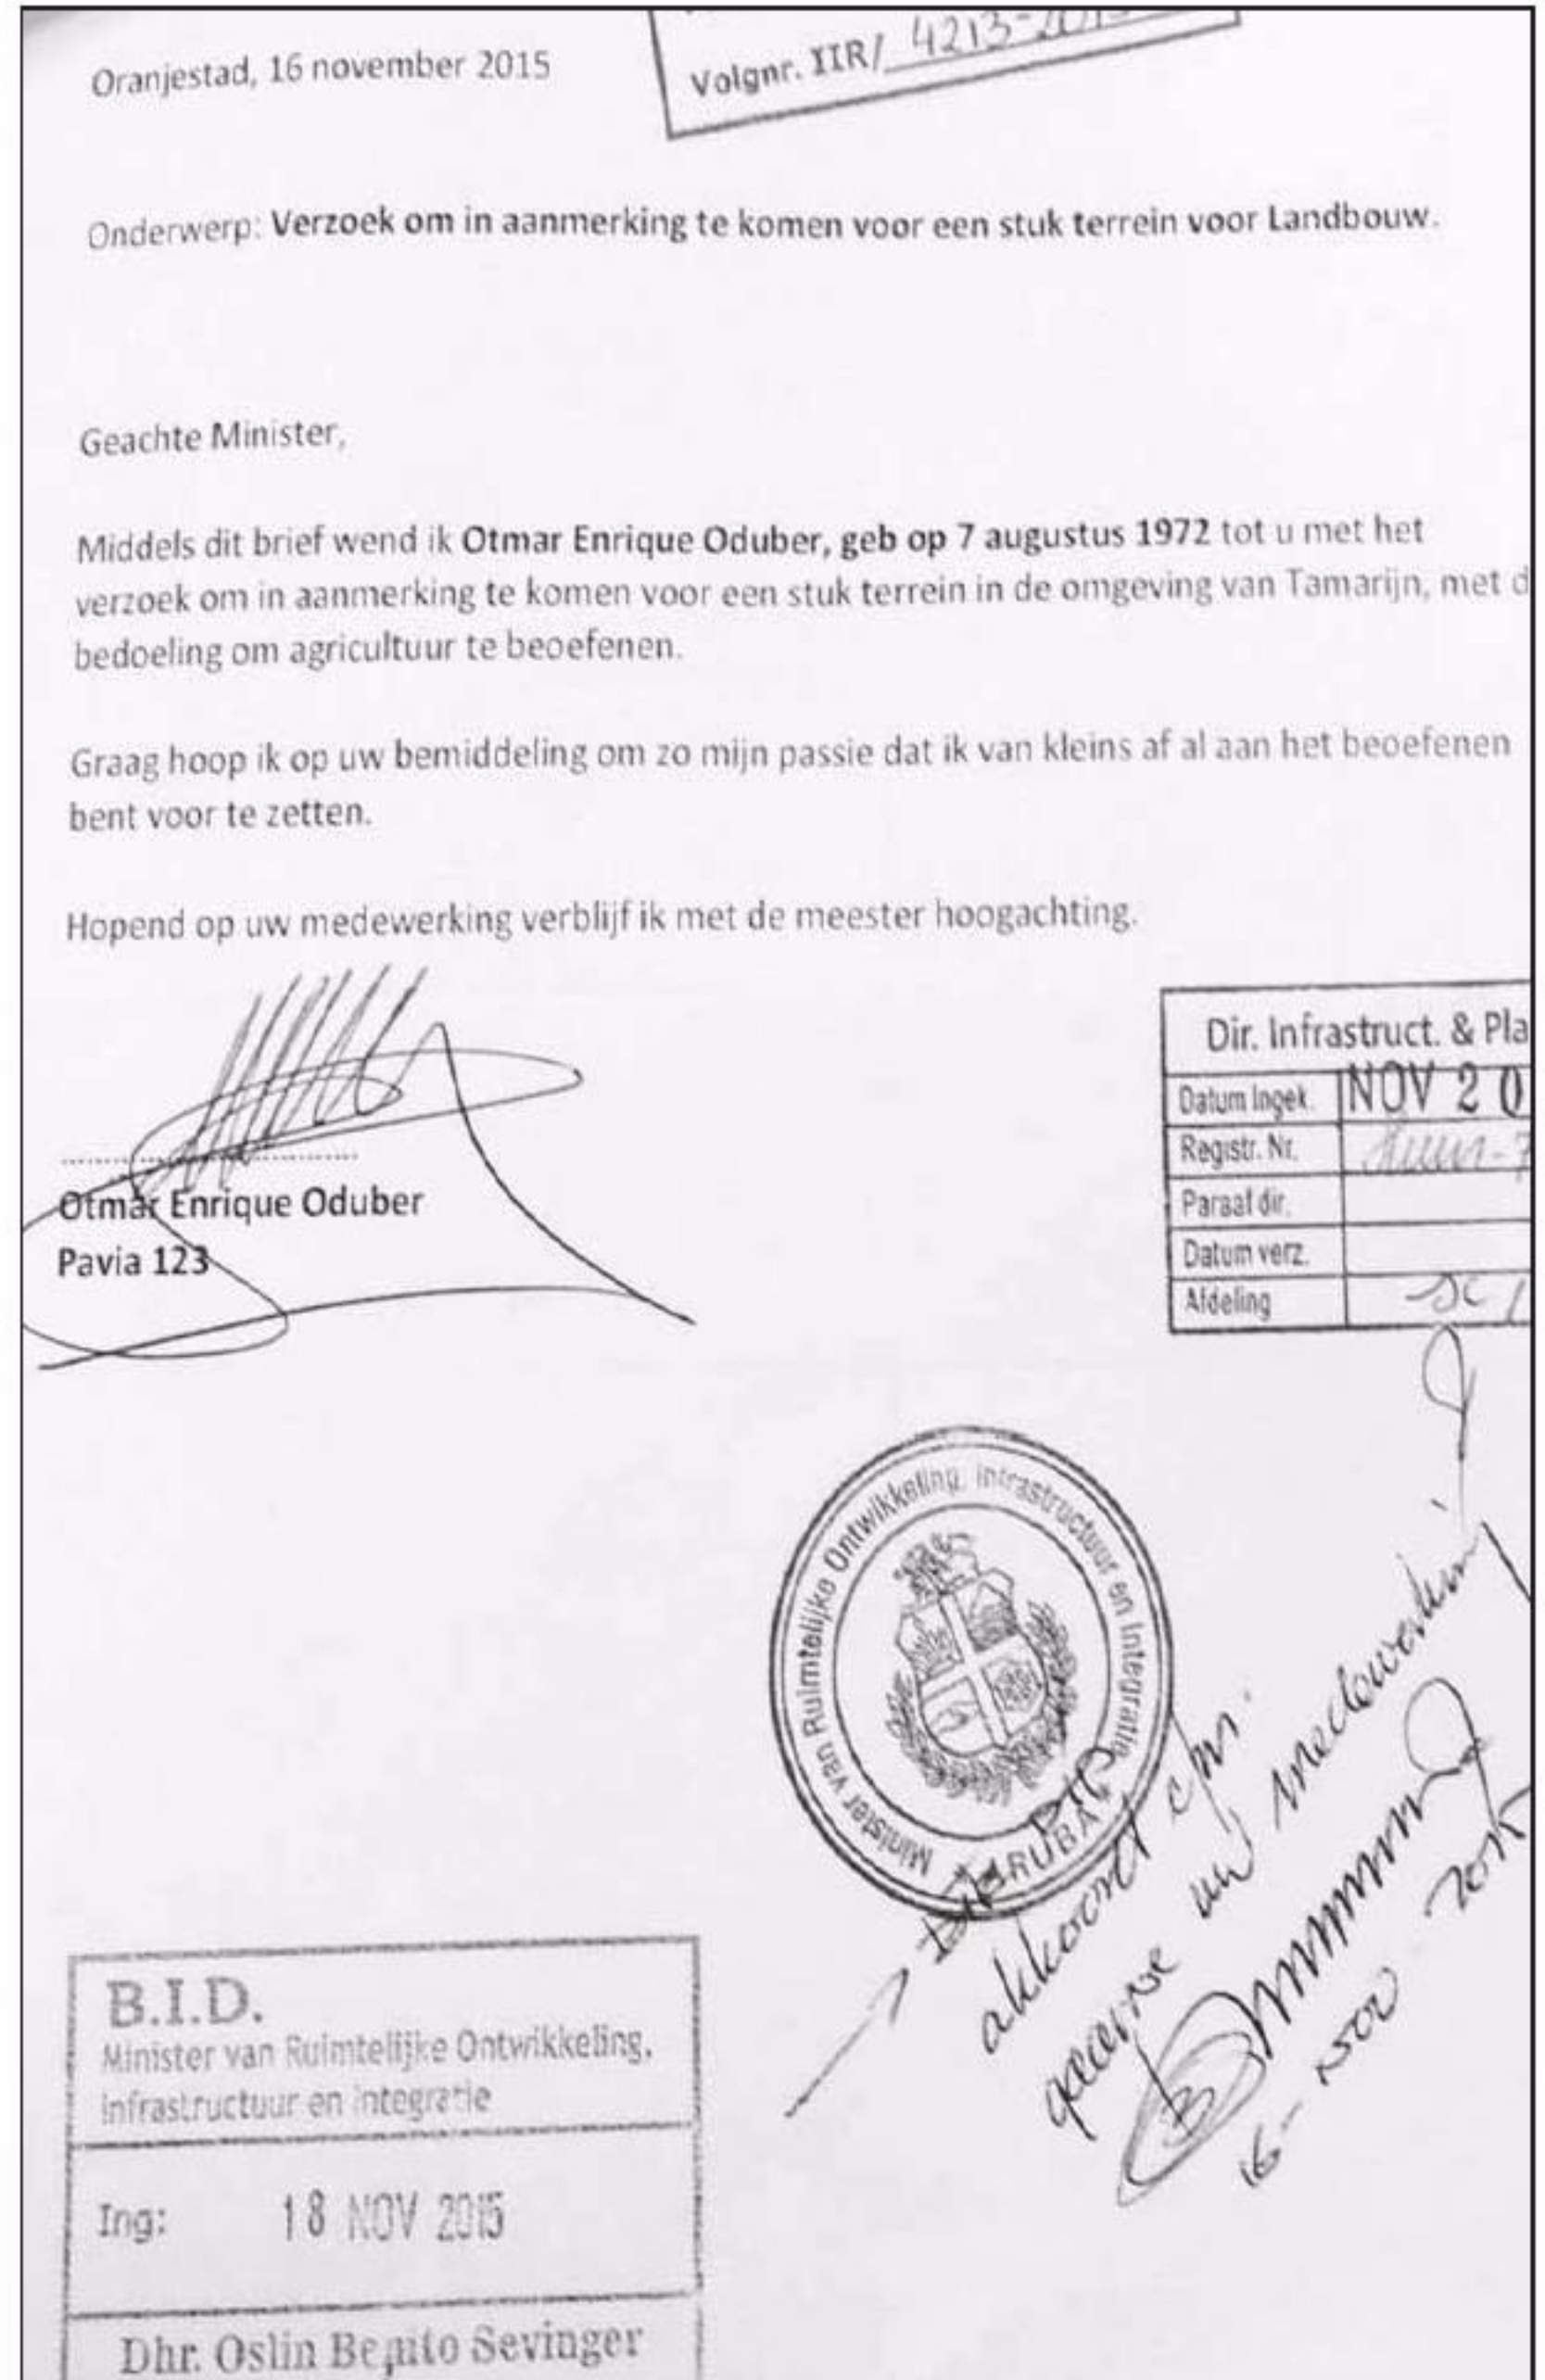 Oranjestad, 16 november 2015
Volgnr. IIR/ 4213-201
Onderwerp: Verzoek om in aanmerking te komen voor een stuk terrein voor Landbouw.
Geachte Minister,
Middels dit brief wend ik Otmar Enrique Oduber, geb op 7 augustus 1972 tot u met het
verzoek om in aanmerking te komen voor een stuk terrein in de omgeving van Tamarijn, met d
bedoeling om agricultuur te beoefenen.
Graag hoop ik op uw bemiddeling om zo mijn passie dat ik van kleins af al aan het beoefenen
bent voor te zetten.
Hopend op uw medewerking verblijf ik met de meester hoogachting.
Otmar Enrique Oduber
Pavia 123
Dir. Infrastruct. & Pla
Datum Ingek. NOV 20
Registr. Nr.
Paraaf dir.
Datum verz.
Afdeling
Minister van Ruimtelijke Ontwikkeling, Infrastructuur en Integratie
ARUBA
DIP
akkoord
gaarne uw medewerking
16-NOV 2015
B.I.D.
Minister van Ruimtelijke Ontwikkeling,
Infrastructuur en Integratie
Ing: 18 NOV 2015
Dhr. Oslin Benito Sevinger